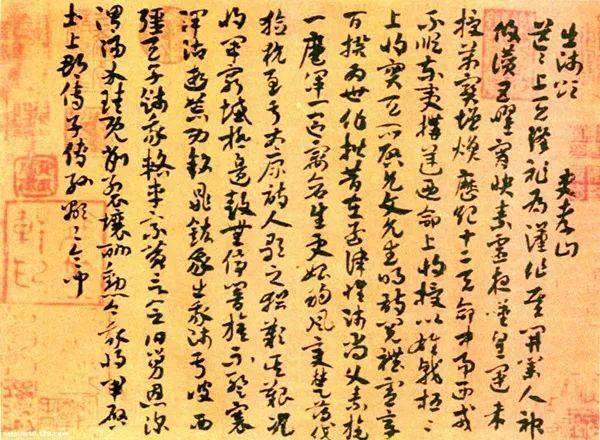 出師頌 史孝山
茫茫上天降祚為漢作基開業人神
攸讚五曜宵映素靈夜歎皇運未
授萬寶增煥歷紀十二天命中易西戎
不順東夷構逆乃命上將授以雄戟桓桓
上將實天所啟允文允武明詩閱禮憲章
百揆為世作楷昔在孟津惟師尚父素旄
一麾渾一區宇蒼生更始朔風變楚薄伐
獫狁至于太原詩人歌之猶歎其艱況
我將軍窮城極邊鼓無停響旗不蹔褰
澤沾遐荒功銘鼎鉉我出我師于彼西
疆天子餞我路車乘黃言念伯舅恩深
渭陽介珪既削裂壤酬勳今我將軍啟
土上郡傳子傳孫顯顯令問